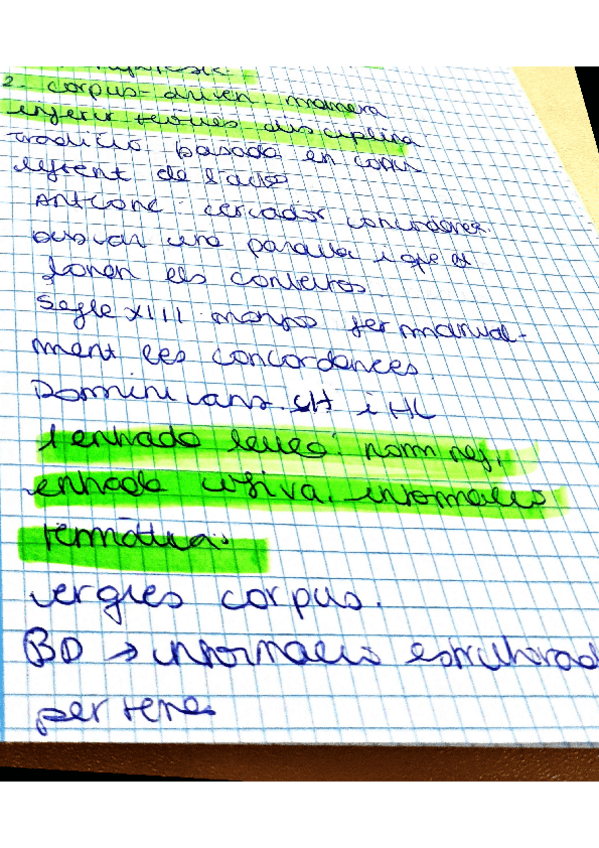 2. corpus-driven: manera
inferir teories disciplina
tradició basada en corpus
de l'acso
Antconc: cercador concordances.
buscar una paraula i que et
donen els contextos.
Segle XIII monjos fer manual-
ment les concordances.
Dominicans. SH i HL
1 entrada
entrada informació
temàtica.
vergies corpus.
BD → informació estructurad
per